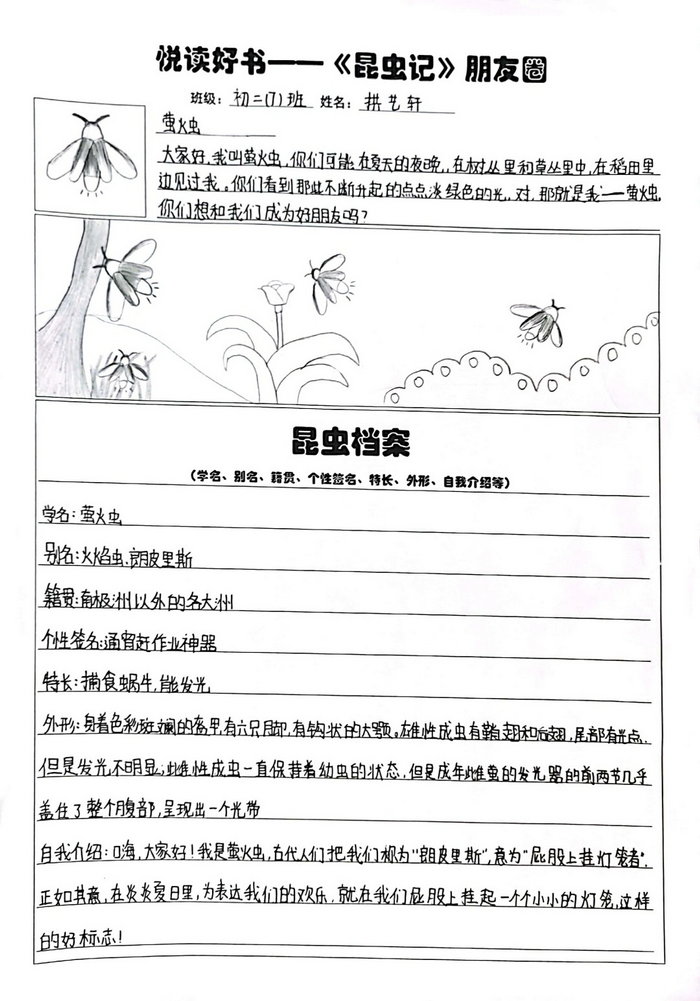 悦读好书——《昆虫记》朋友圈
班级：初二(7)班 姓名：拱艺轩
萤火虫
大家好，我叫萤火虫，你们可能在夏天的夜晚，在树丛里和草丛里中，在稻田里
边见过我。你们看到那些不断升起的点点淡绿色的光，对，那就是我——萤火虫，
你们想和我们成为好朋友吗？
昆虫档案
（学名、别名、籍贯、个性签名、特长、外形、自我介绍等）
学名：萤火虫
别名：火焰虫、朗皮里斯
籍贯：南极洲以外的各大洲
个性签名：通宵赶作业神器
特长：捕食蜗牛，能发光
外形：身着色彩斑斓的盔甲，有六只脚，有钩状的大颚。雄性成虫有鞘翅和后翅，尾部有光点，
但是发光不明显；雌性成虫一直保持着幼虫的状态，但是成年雌萤的发光器的前两节几乎
盖住了整个腹部，呈现出一个光带
自我介绍：嗨，大家好！我是萤火虫，古代人们把我们称为“朗皮里斯”，意为“屁股上挂灯笼者”，
正如其意，在炎炎夏日里，为表达我们的欢乐，就在我们屁股上挂起一个个小小的灯笼，这样
的好标志！